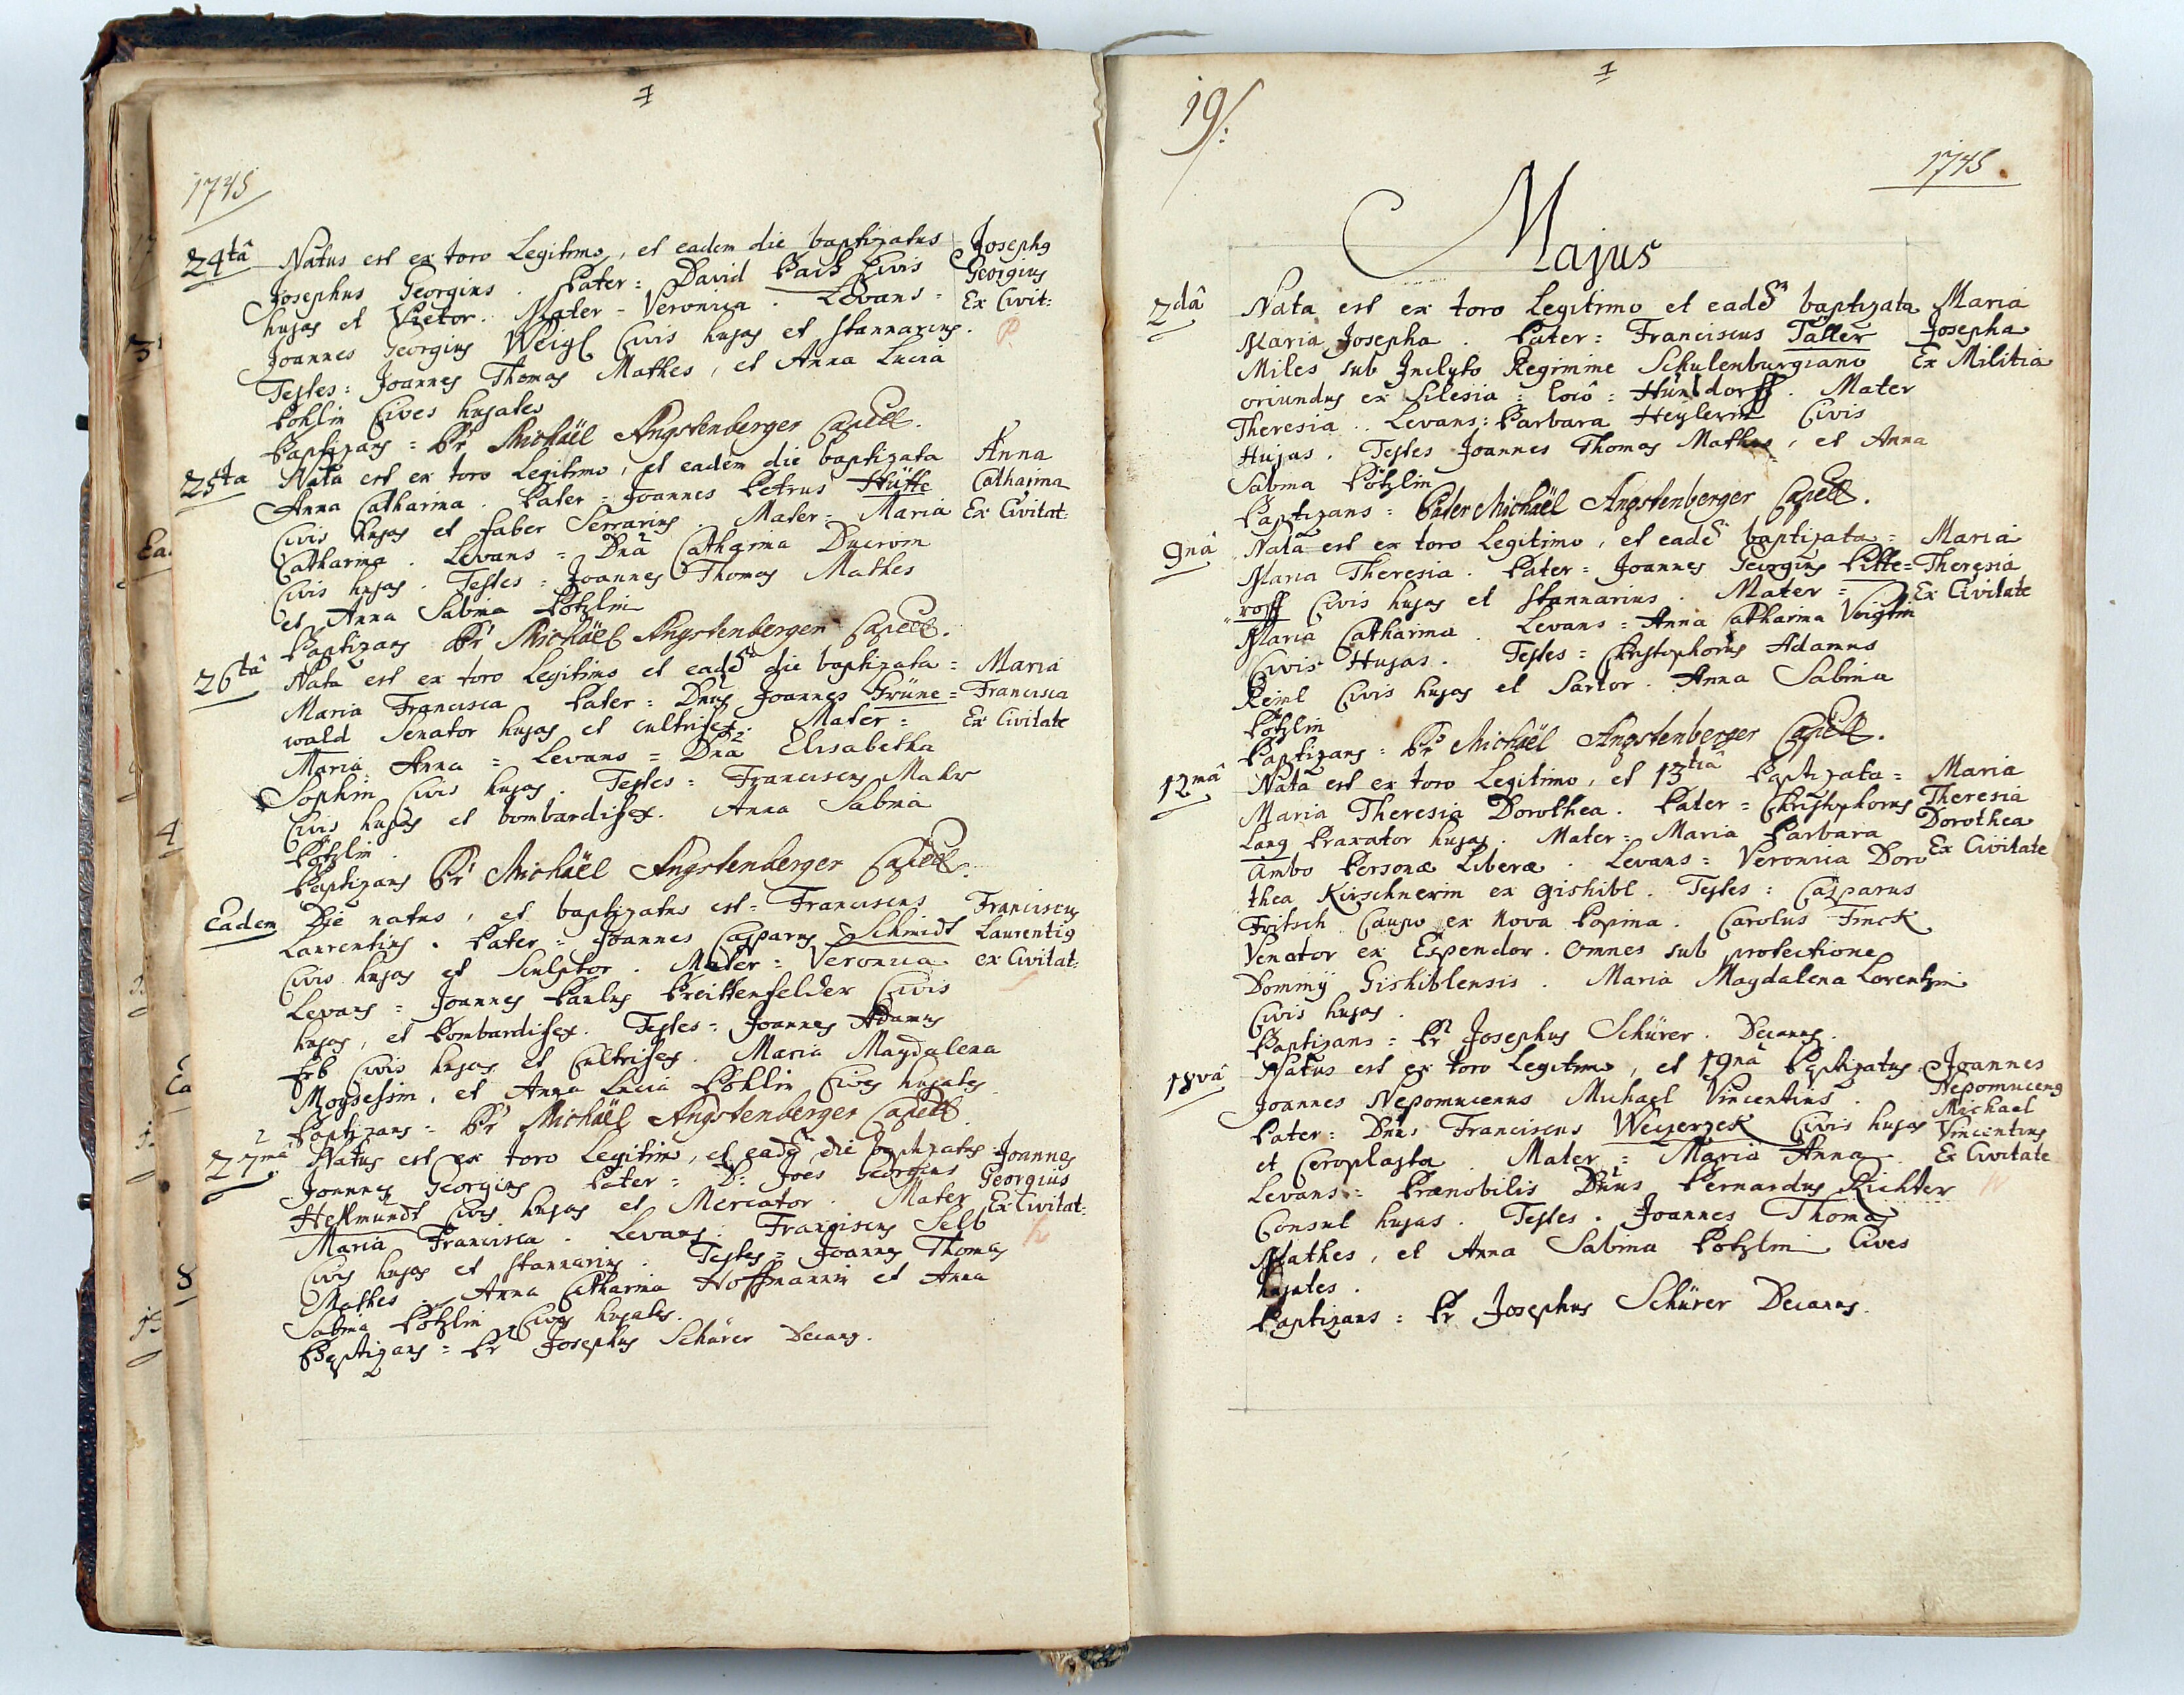 1745
24tâ Natus est ex toro Legitimo, et eadem die baptizatus Josephg
Josephus Georgius. Pater = David Pach Civis Georgius
hujas et Vietor. Mater = Veronica. Levans = Ex Civit:
Joannes Georgius Weigl Civis hujas et stannarius.
Testes = Joannes Thomas Mathes, et Anna Lucia
Pöhlin Cives hujates
Baptizans = Pr Michaël Angstenberger Capell.
25ta Nata est ex toro Legitimo, et eadem die baptizata Anna
Anna Catharina. Pater = Joannes Petrus Hütte Catharina
Civis hujas et faber Serrarius. Mater = Maria Ex Civitat:
Catharina. Levans = Dnâ Catharina
Civis hujas. Testes = Joannes Thomas Mathes
et Anna Sabina Pötzlin
Baptizans Pr Michaël Angstenberger Capell.
26tâ Nata est ex toro Legitimo et eadê die baptizata = Maria
Maria Francisca Pater = Dnus Joannes Grüne = Francisca
wald Senator hujas et cultrifex. Mater = Ex Civitate
Maria Anna = Levans = Dna Elisabetha
Sophin Civis hujas. Testes = Franciscus Mahr
Civis hujas et bombardifex. Anna Sabina
Pötzlin.
Baptizans Pr Michaël Angstenberger Capell.
Eadem Die natus, et baptizatus est = Franciscus Franciscus
Laurentius. Pater = Joannes Casparus Schmidt Laurentig
Civis hujas et Sculptor. Mater = Veronica ex Civitat:
Levans = Joannes Paulus Breittenfelder Civis
hujas, et Bombardifex. Testes = Joannes Adamus
Erb Civis hujas et Cultrifex. Maria Magdalena
Moysessin, et Anna Lucia Pöhlin Cives hujates
Baptizans = Pr Michaël Angstenberger Capell.
27mâ Natus est ex toro Legitimo, et eadê die baptizatus = Joannes
Joannes Georgius Pater = D: Joes Georgius Georgius
Hellmundt Civis hujas et Mercator. Mater Ex Civitat:
Maria Francisca. Levans: Franciscus Selb
Civis hujas et stannarius. Testes = Joannes Thomas
Mathes. Anna Catharina Hoffmannin et Anna
Sabina Pötzlin Cives hujates.
Baptizans = Pr Josephus Schürer Decanus.
19/:
1745.
Majus
2dâ Nata est ex toro Legitimo et eadê baptizata Maria
Maria Josepha. Pater = Franciscus Taller Josepha
Miles sub Inclyto Regimine Schulenburgiano Ex Militia
oriundus ex Silesia = locô = Hünsdorff. Mater
Theresia.. Levans: Barbara Heylerin Civis
Hujas. Testes Joannes Thomas Mathes, et Anna
Sabina Pötzlin
Baptizans = Pater Michaël Angstenberger Capell.
9nâ Nata est ex toro Legitimo, et eadê baptizata = Maria
Maria Theresia. Pater = Joannes Georgius Pitte= Theresia
roff Civis hujas et stannarius. Mater = Ex Civitate
Maria Catharina. Levans = Anna Catharina Voigtin
Civis Hujas. Testes = Christophorus Adamus
Reinl Civis hujas et Sartor. Anna Sabina
Pötzlin
Baptizans = Pr Michaël Angstenberger Capell.
12mâ Nata est ex toro Legitimo, et 13tiâ Baptizata = Maria
Maria Theresia Dorothea. Pater = Christophorus Theresia
Lang Braxator hujas. Mater = Maria Barbara Dorothea
ambo Personæ Liberæ. Levans = Veronica Doro Ex Civitate
thea Kirschnerin ex Gishibl. Testes = Casparus
Fritsch Caupo ex Nova Popina. Carolus Finck
Venator ex Espendor. omnes sub protectione
Dominij Gishiblensis. Maria Magdalena Lorentzin
Civis hujas.
Baptizans = Pr Josephus Schürer. Decanus.
18vâ Natus est ex toro Legitimo, et 19nâ Baptizatus Joannes
Joannes Nepomucenus Michael Vincentius. Nepomuceng
Pater = Dnus Franciscus Weyerzek Civis hujas Michael
et Ceroplasta. Mater = Maria Anna Vincentius
Levans = Prænobilis Dnus Bernardus Richter Ex Civitate
Consul hujas. Testes. Joannes Thomas
Mathes, et Anna Sabina Pötzlin Cives
hujates.
Baptizans = Pr Josephus Schürer Decanus.